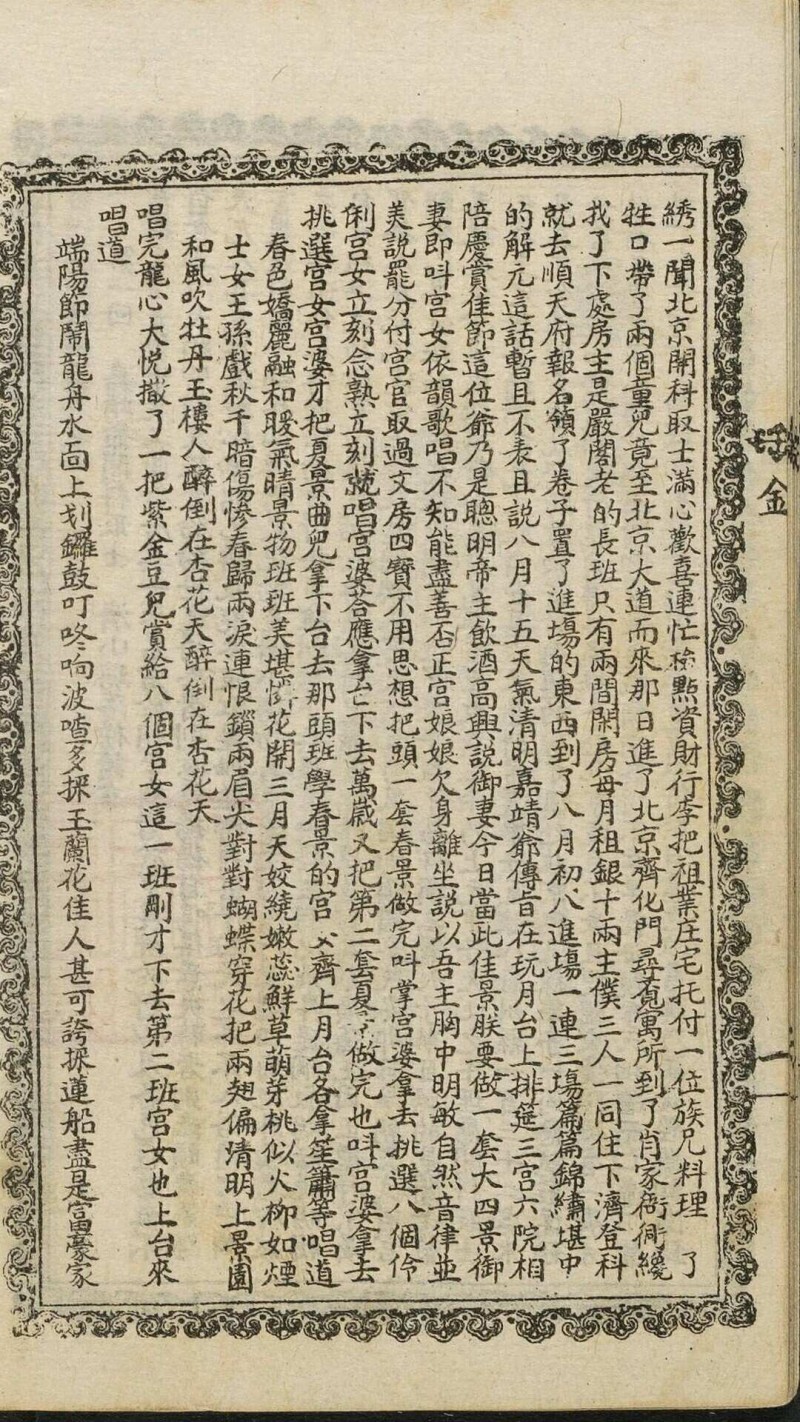 綉一聞北京開科取士滿心歡喜連忙檢點資財行李把祖業庄宅托付一位族兄料理了
牲口帶了兩個童兒竟至北京大道而來那日進了北京齊化門尋覔寓所到了肖家衚衕纔
找了下處房主是嚴閣老的長班只有兩間閑房每月租銀十兩主僕三人一同住下濟登科
就去順天府報名領了卷子置了進塲的東西到了八月初八進塲一連三塲篇篇錦繡堪中
的解元這話暫且不表且説八月十五天氣清明嘉靖爺傳旨在玩月台上排筵三宮六院相
陪慶賞佳節這位爺乃是聰明帝主飲酒高興説御妻今日當此佳景朕要做一套大四景御
妻即呌宮女依韻歌唱不知能盡善否正宮娘娘欠身離坐説以吾主胸中明敏自然音律並
美説罷分付宮官取過文房四寳不用思想把頭一套春景做完呌掌宮婆拿去挑選八個伶
俐宮女立刻念熟立刻就唱宮婆荅應拿下去萬歲又把第二套夏做完也呌宮婆拿去
挑選宮女宮婆才把夏景曲兒拿下台去那頭班學春景的宮女齊上月台各拿笙簫等唱道
春色嬌麗融和暖氣晴景物班班美堪花開三月天姣繞嫩蕊鮮草萌芽桃似火柳如煙
士女王孫戲秋千暗傷慘春歸兩淚連恨鎖兩眉尖對對蝴蝶穿花把兩翅偏清明上景園
和風吹牡丹玉樓人醉倒在杏花天醉倒在杏花天
唱完龍心大悦撒了一把紫金豆兒賞給八個宮女這一班剛才下去第二班宮女也上台來
唱道
端陽節鬧龍舟水靣上划鑼鼓叮咚响波喳多採玉蘭花佳人甚可誇採蓮船盡是富豪家
金
一